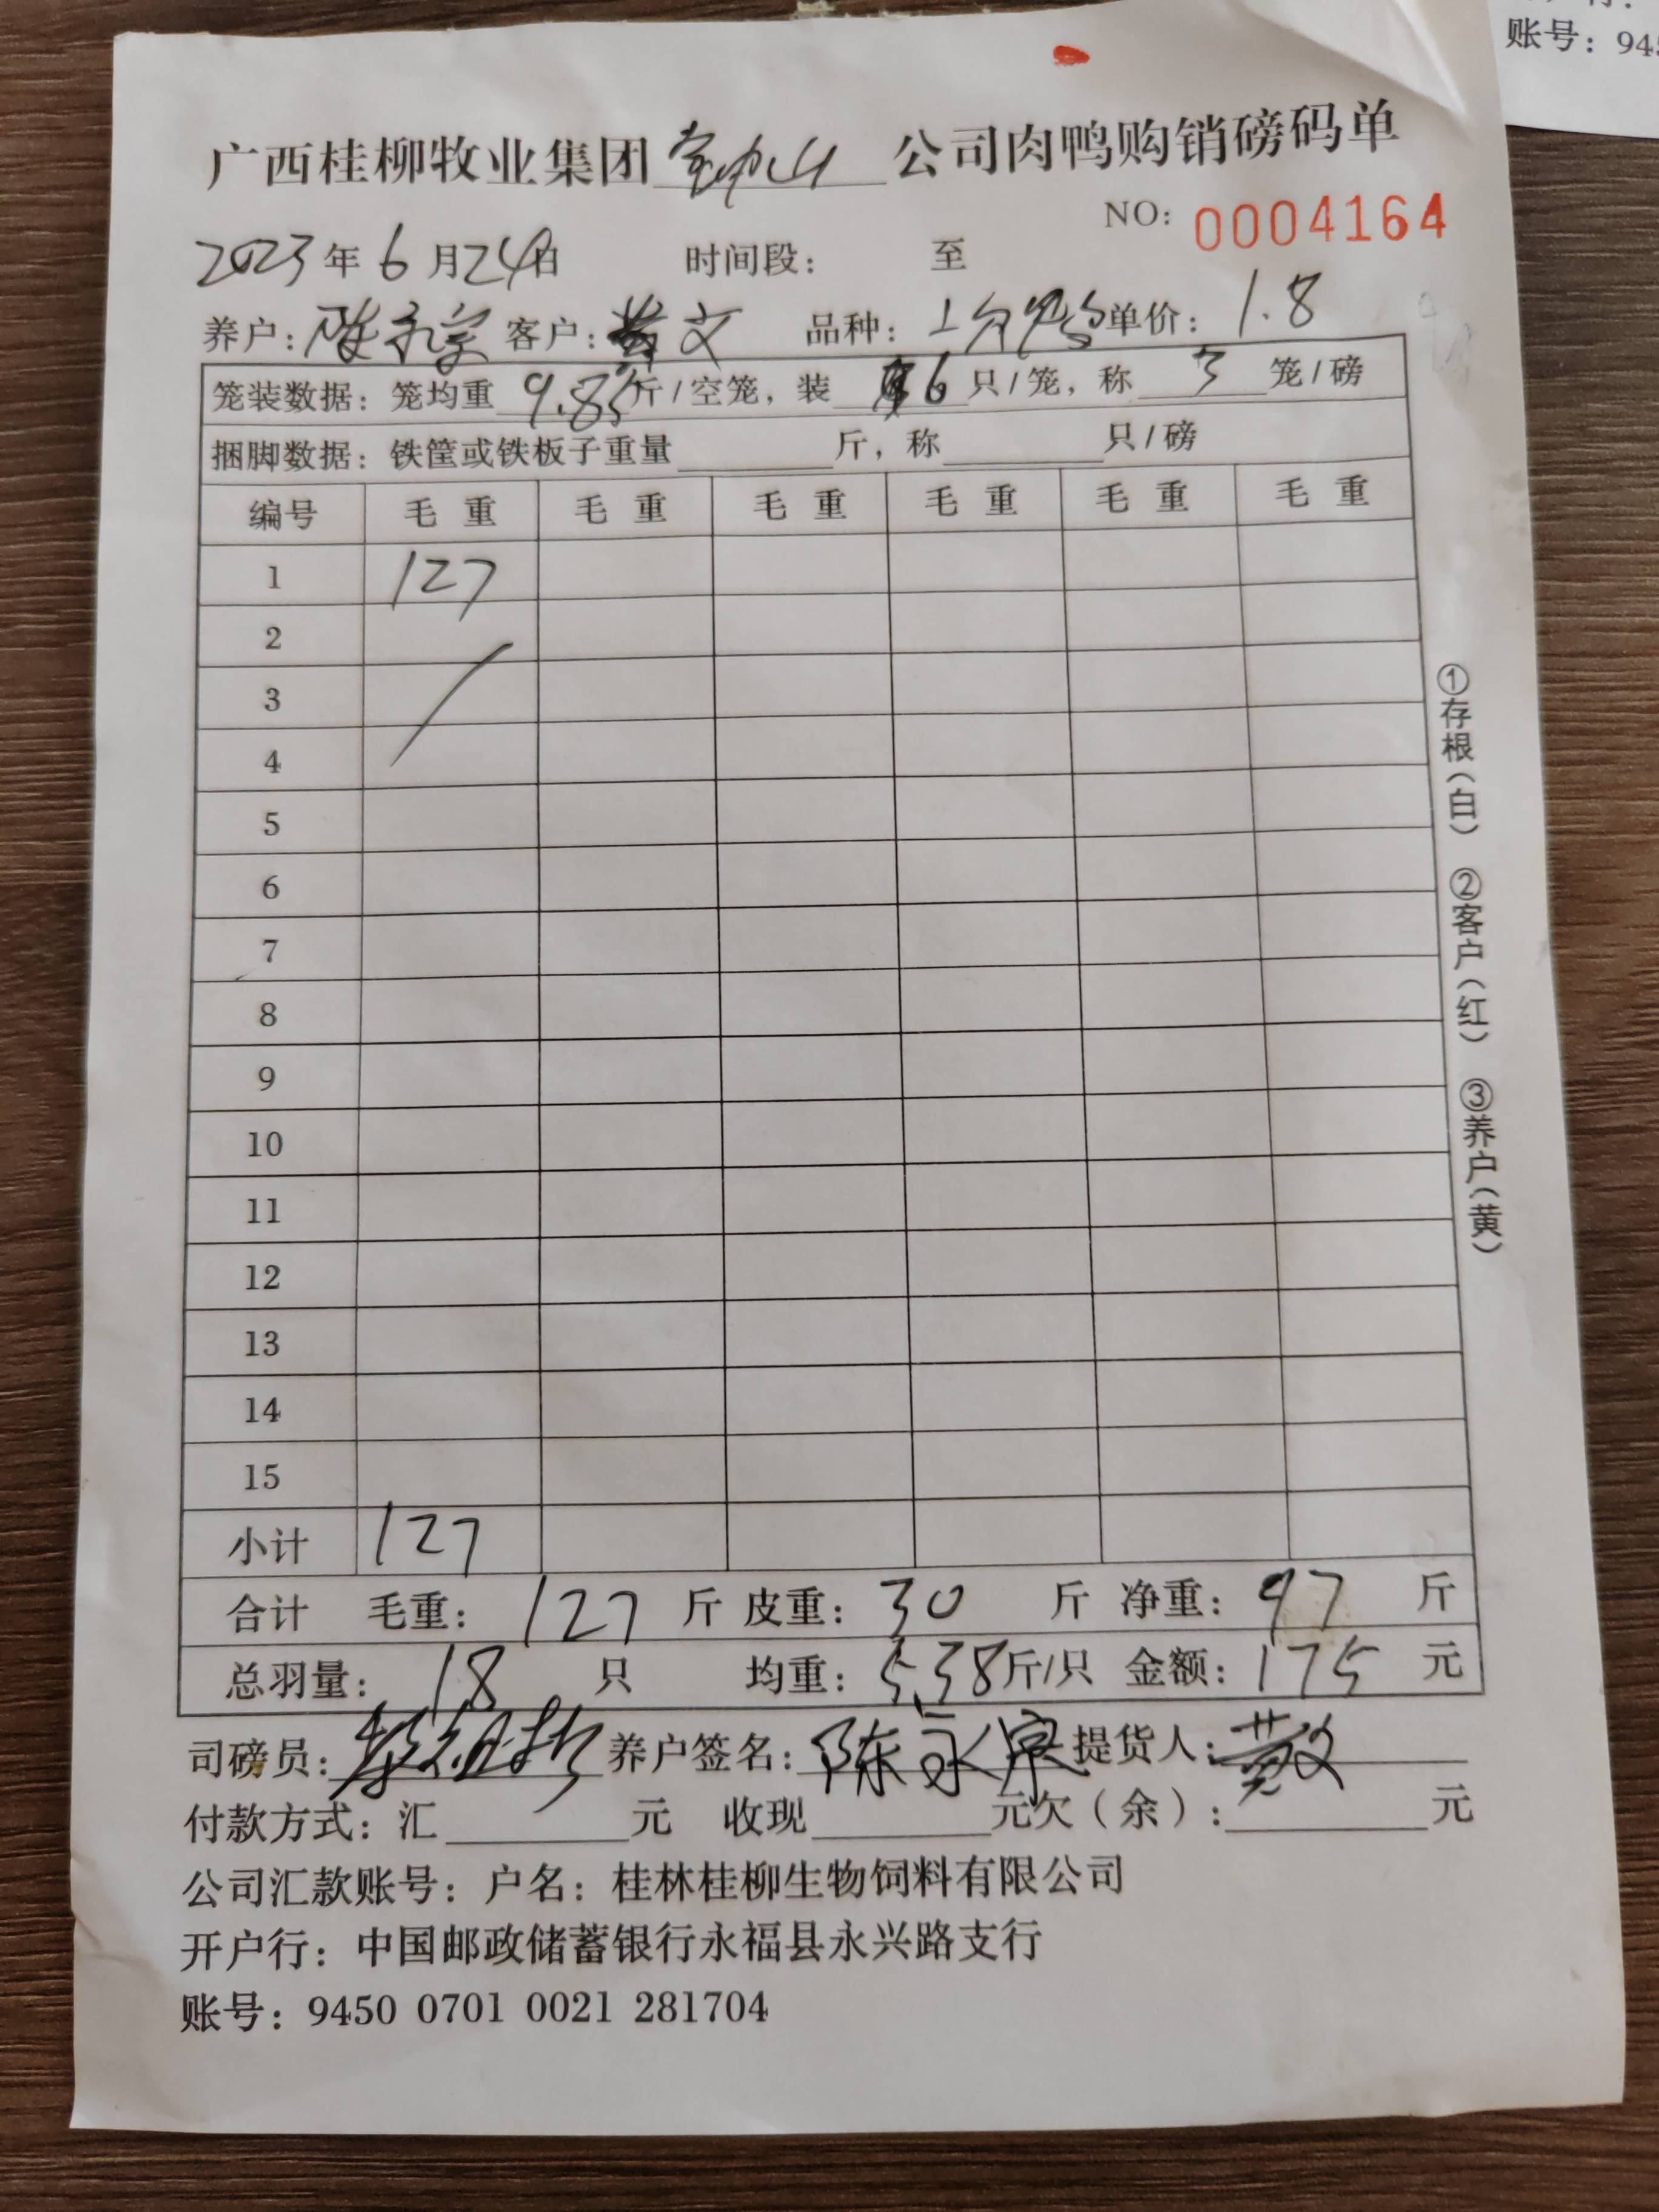 账号：945
广西桂柳牧业集团 公司肉鸭购销磅码单
NO：0004164
2023年6月24日 时间段： 至
养户：陈永 客户：黄文 品种： 单价：1.8
笼装数据：笼均重9.85斤/空笼，装6只/笼，称3笼/磅
捆脚数据：铁筐或铁板子重量 斤，称 只/磅
编号 毛重 毛重 毛重 毛重 毛重 毛重
1 127
2
3
4
5
6
7
8
9
10
11
12
13
14
15
小计 127
合计 毛重：127斤 皮重：30斤 净重：97斤
总羽量：18只 均重：5.38斤/只 金额：175元
司磅员： 养户签名：陈永 提货人：黄文
付款方式：汇 元 收现 元欠（余）： 元
公司汇款账号：户名：桂林桂柳生物饲料有限公司
开户行：中国邮政储蓄银行永福县永兴路支行
账号：9450 0701 0021 281704
①存根（白） ②客户（红） ③养户（黄）